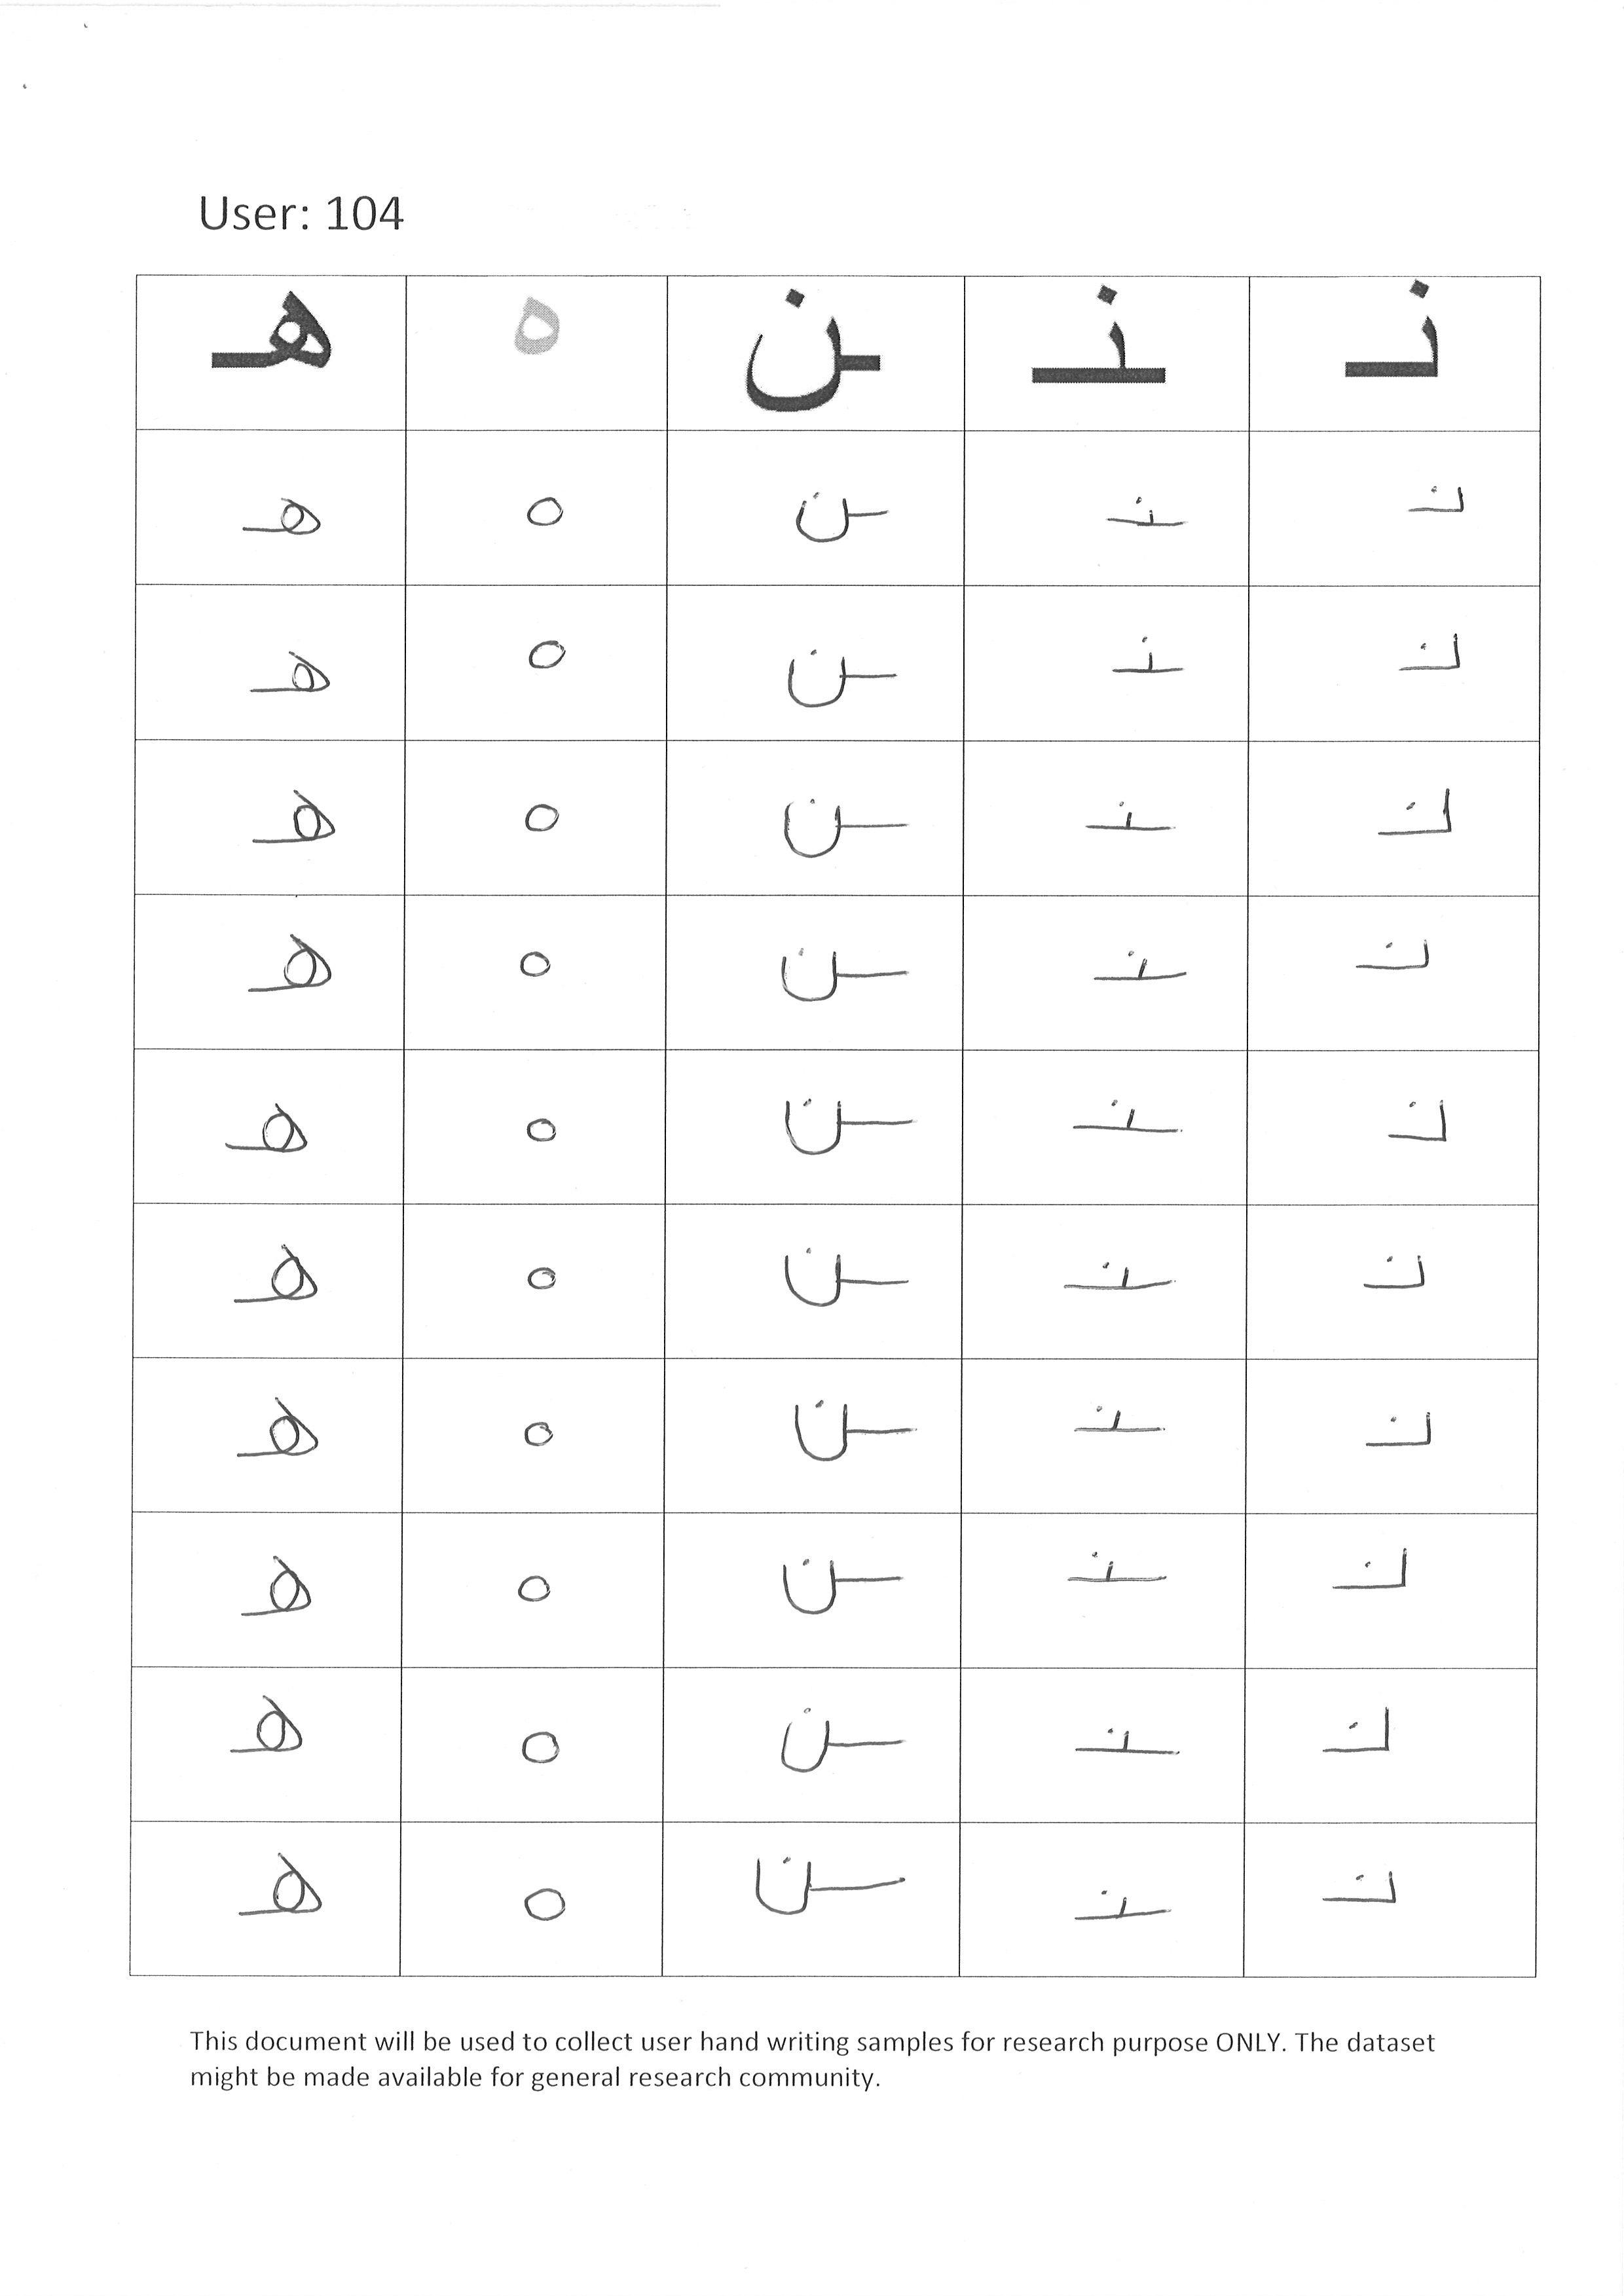 User: 104
نـ ـنـ ـن ه هـ
نـ ـنـ ـن ه هـ
نـ ـنـ ـن ه هـ
نـ ـنـ ـن ه هـ
نـ ـنـ ـن ه هـ
نـ ـنـ ـن ه هـ
نـ ـنـ ـن ه هـ
نـ ـنـ ـن ه هـ
نـ ـنـ ـن ه هـ
نـ ـنـ ـن ه هـ
نـ ـنـ ـن ه هـ
This document will be used to collect user hand writing samples for research purpose ONLY. The dataset
might be made available for general research community.